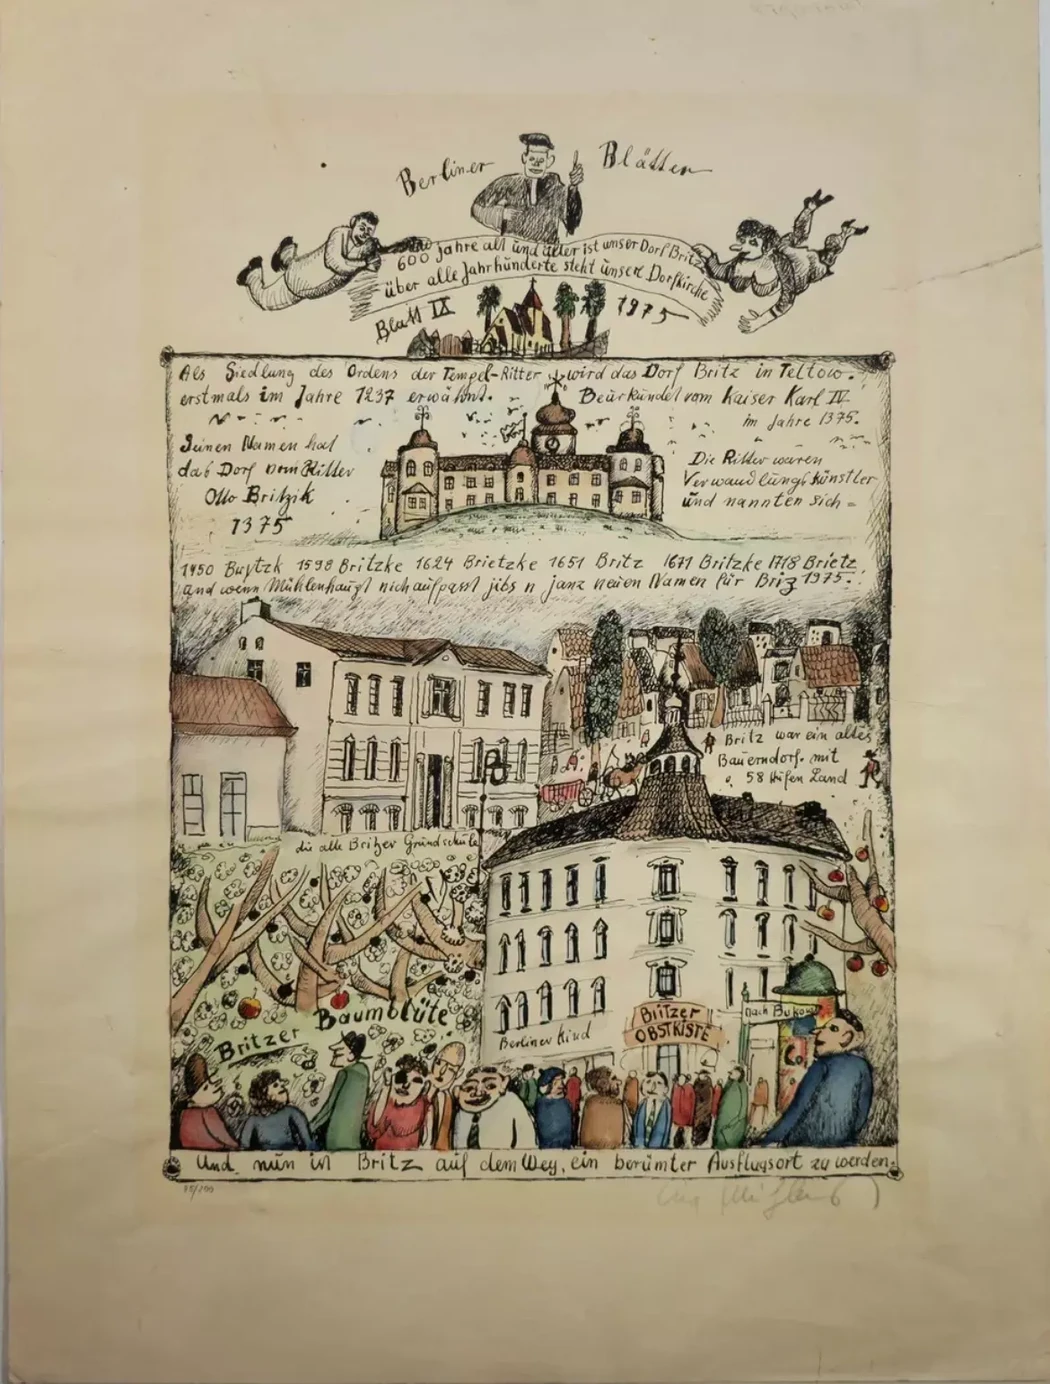 Berliner Blätter
600 Jahre alt und älter ist unser Dorf Britz
über alle Jahrhunderte steht unsere Dorfkirche
Blatt IX 1975
Als Siedlung des Ordens der Tempel-Ritter wird das Dorf Britz in Teltow.
erstmals im Jahre 1237 erwähnt. Beurkundet vom Kaiser Karl IV.
im Jahre 1375.
Seinen Namen hat
das Dorf vom Ritter
Otto Britzik
1375
Die Ritter waren
Verwandlungskünstler
und nannten sich =
1450 Brytzk 1598 Britzke 1624 Brietzke 1651 Britz 1671 Britzke 1718 Brietz
und wenn Mühlenhaupt nich aufpasst jibs n janz neuen Namen für Briz 1975.
Britz war ein altes
Bauerndorf. mit
58 Hufen Land
die alte Britzer Grundschule
Britzer Baumblüte
Berliner Kind
Britzer
OBSTKISTE
Nach Bukow
Und nun ist Britz auf dem Wey, ein berümter Ausflugsort zu werden.